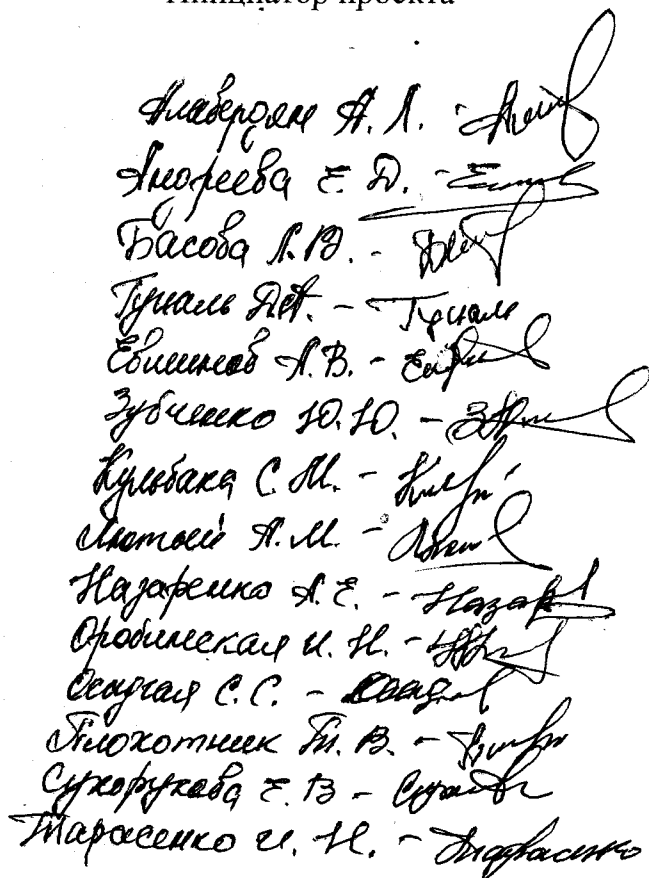 Инициатор проекта
Алабердян А. Л. -
Андреева Е. Д. -
Басова Л. В. -
Гуналь Д.А. - Гуналь
Евминов А. В. -
Зубченко Ю. Ю. -
Кульбака С. М. -
Лютый А. М. -
Назаренко А. Е. - Назар
Оробинская И. Н. -
Осадчая С. С. -
Плохотник Т. В. -
Сухорукова Е. В -
Тарасенко И. Н. - Тарасенко